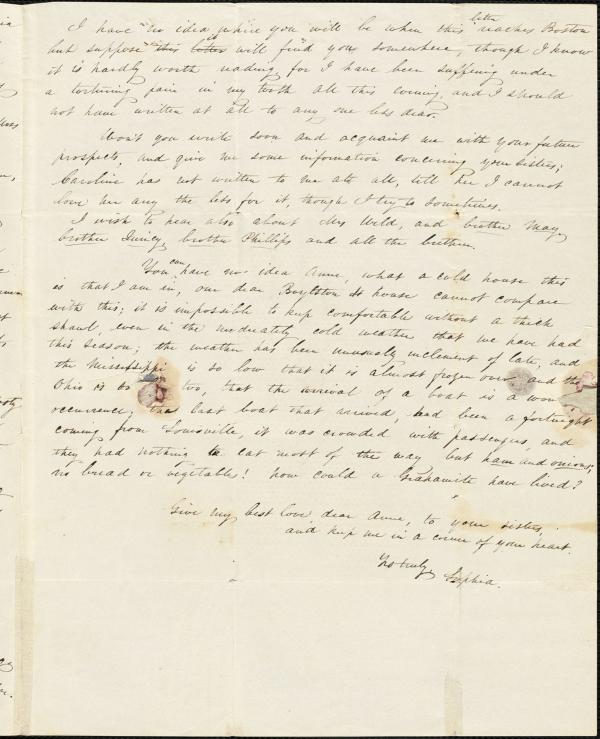 I have no idea where you will be when this letter reaches Boston
but suppose this letter will find you somewhere, though I know
it is hardly worth reading for I have been suffering under
a torturing pain in my tooth all this evening, and I should
not have written at all to any one less dear.
Won't you write soon and acquaint me with your future
prospects, and give me some information concerning your sisters;
Caroline has not written to me at all, tell her I cannot
love her any the less for it, though I try to sometimes.
I wish to hear also about Mrs Wild, and brother May,
brother Quincy, brother Phillips and all the brethren.
You can have no idea Anne, what a cold house this
is that I am in, our dear Boylston St house cannot compare
with this; it is impossible to keep comfortable without a thick
shawl, even in the moderately cold weather that we have had
this season; the weather has been unusually inclement of late, and
the Mississippi is so low that it is almost frozen over, and the
Ohio is so too, that the arrival of a boat is a
occurrence; the last boat that arrived, had been a fortnight
coming from Louisville, it was crowded with passengers, and
they had nothing to eat most of the way but ham and onions,
no bread or vegetable! how could a Grahamite have lived?
Give my best love, dear Anne, to your sisters,
and keep me in a corner of your heart.
Yrs truly,
Sophia.